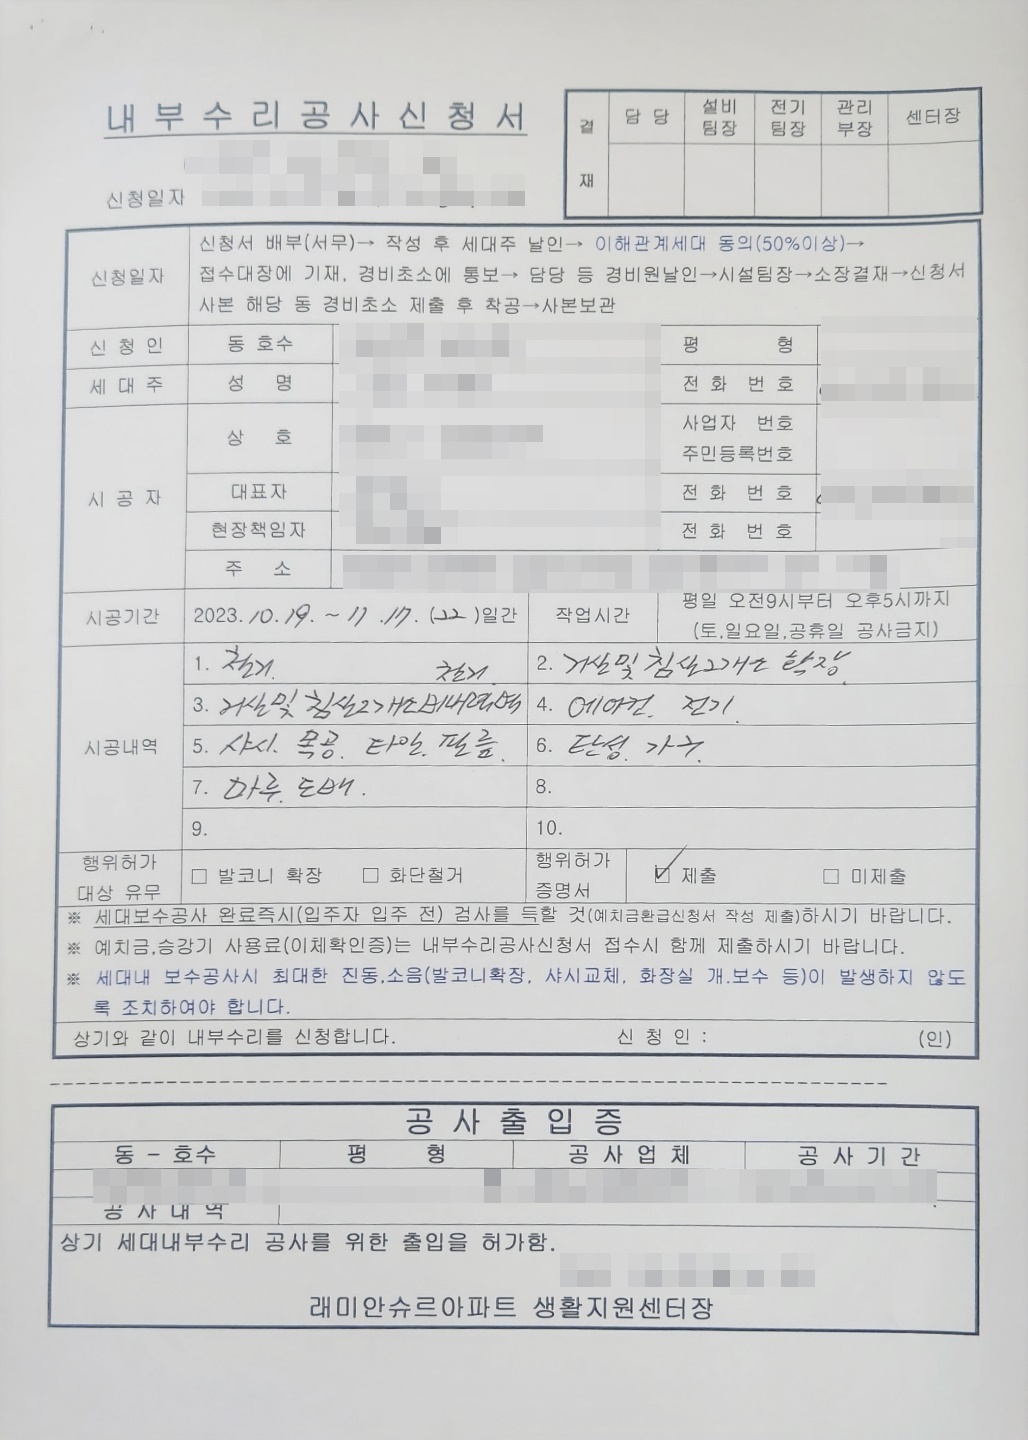 내부수리공사신청서
결재 담당 설비팀장 전기팀장 관리부장 센터장
신청일자
신청일자 신청서 배부(서무)→ 작성 후 세대주 날인→ 이해관계세대 동의(50%이상)→
접수대장에 기재, 경비초소에 통보→ 담당 동 경비원날인→시설팀장→소장결재→신청서
사본 해당 동 경비초소 제출 후 착공→사본보관
신청인 동 호수 평 형
세대주 성 명 전화 번호
시공자 상 호 사업자 번호
주민등록번호
대표자 전화 번호
현장책임자 전화 번호
주 소
시공기간 2023.10.19. ~ 11.17. (22)일간 작업시간 평일 오전9시부터 오후5시까지
(토,일요일,공휴일 공사금지)
시공내역
1. 철거. 철거. 2. 거실및 침실2개소 확장.
3. 거실및 침실2개소 4. 에어컨. 전기.
5. 샤시. 목공. 타일. 필름. 6. 탄성. 가구.
7. 마루. 도배. 8.
9. 10.
행위허가 대상 유무 □ 발코니 확장 □ 화단철거 행위허가 증명서 ☑ 제출 □ 미제출
※ 세대보수공사 완료즉시(입주자 입주 전) 검사를 득할 것(예치금환급신청서 작성 제출)하시기 바랍니다.
※ 예치금,승강기 사용료(이체확인증)는 내부수리공사신청서 접수시 함께 제출하시기 바랍니다.
※ 세대내 보수공사시 최대한 진동,소음(발코니확장, 샤시교체, 화장실 개.보수 등)이 발생하지 않도
록 조치하여야 합니다.
상기와 같이 내부수리를 신청합니다. 신 청 인 : (인)
공사출입증
동 - 호수 평 형 공사업체 공사기간
공사내역
상기 세대내부수리 공사를 위한 출입을 허가함.
래미안슈르아파트 생활지원센터장